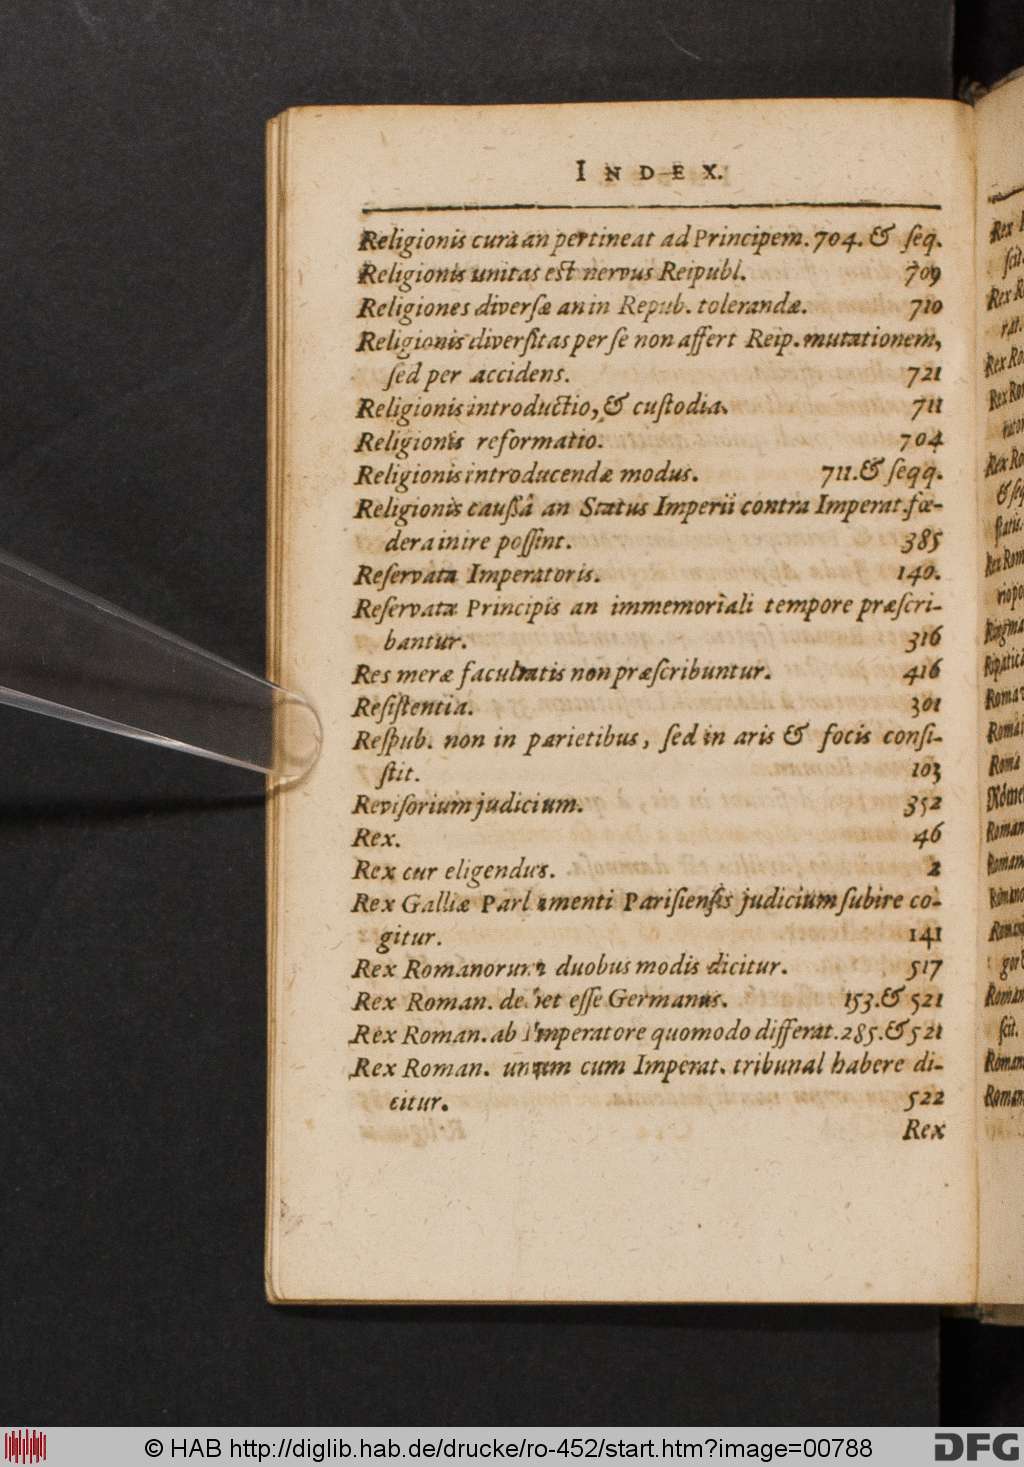 INDEX.
Religionis cura an pertineat ad Principem. 704. & ſeq.
Religionis unitas est nervus Reipubl. 709
Religiones diverſæ an in Repub. tolerandæ. 710
Religionis diverſitas per ſe non affert Reip. mutationem,
ſed per accidens. 721
Religionis introductio, & cuſtodia. 711
Religionis reformatio. 704
Religionis introducendæ modus. 711. & ſeqq.
Religionis cauſſâ an Status Imperii contra Imperat. fœ-
dera inire poſſint. 385
Reſervata Imperatoris. 140.
Reſervata Principis an immemoriali tempore præſcri-
bantur. 316
Res meræ facultatis non præſcribuntur. 416
Reſiſtentia. 301
Reſpub. non in parietibus, ſed in aris & focis conſi-
ſtit. 103
Reviſorium judicium. 352
Rex. 46
Rex cur eligendus. 2
Rex Galliæ Parlamenti Pariſienſis judicium ſubire co-
gitur. 141
Rex Romanorum duobus modis dicitur. 517
Rex Roman. debet eſſe Germanus. 153. & 521
Rex Roman. ab Imperatore quomodo differat. 285. & 521
Rex Roman. unum cum Imperat. tribunal habere di-
citur. 522
Rex
© HAB http://diglib.hab.de/drucke/ro-452/start.htm?image=00788
DFG